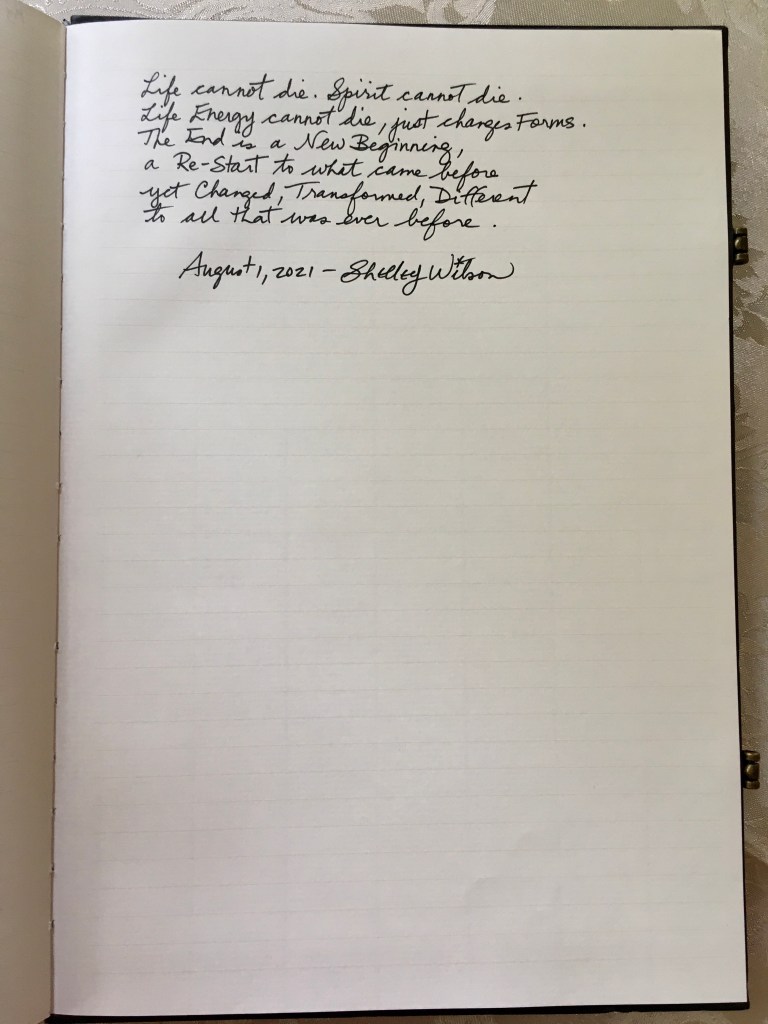 Life cannot die. Spirit cannot die.
Life Energy cannot die, just changes Forms.
The End is a New Beginning,
a Re-Start to what came before
yet Changed, Transformed, Different
to all that was ever before.
August 1, 2021 - Shelley Wilson